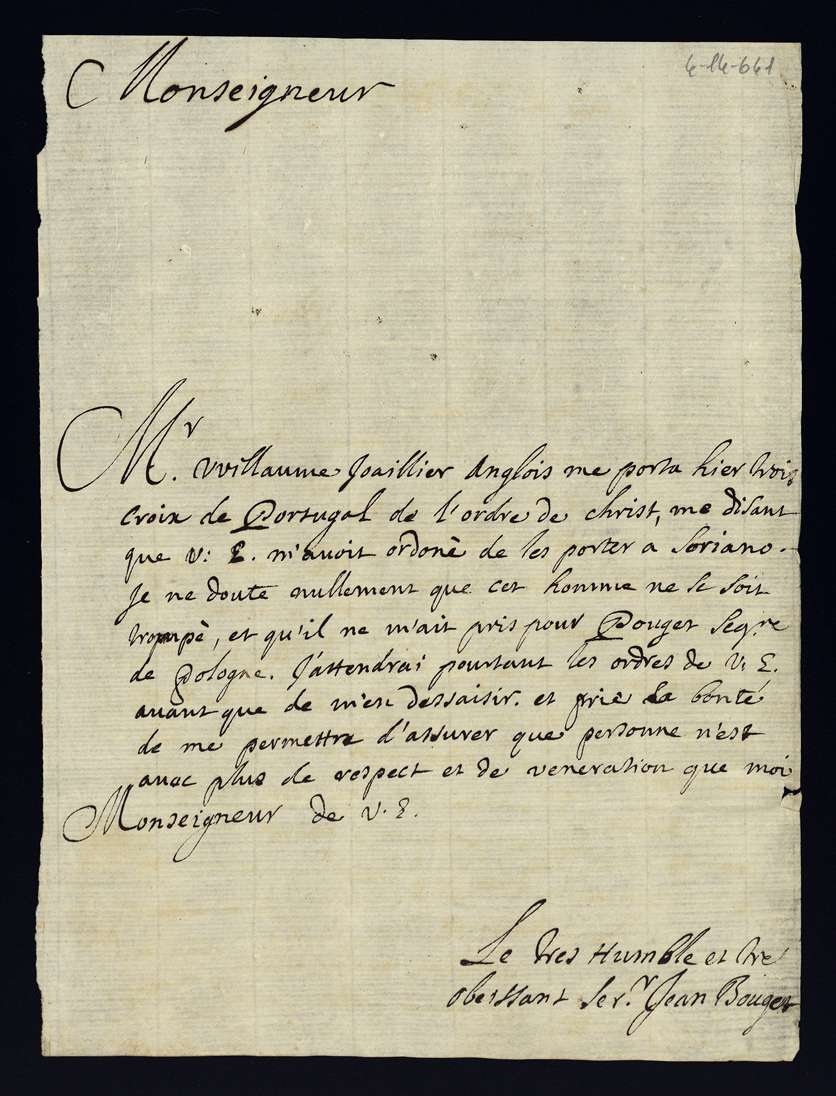 4-14-661
Monseigneur
Mr. VVillaume Joaillier Anglois me porta hier trois
croix de Portugal de l'ordre de christ, me disant
que V: E. m'avoit ordonè de les porter a Soriano.
Je ne doute nullement que cet homme ne se soit
trompè, et qu'il ne m'ait pris pour Pouget Segre
de Pologne. J'attendrai pourtant les ordres de V: E.
auant que de m'en dessaisir. et prie sa bonté
de me permettre d'assurer que personne n'est
auec plus de respect et de veneration que moi
Monseigneur de V. E.
Le tres Humble et tres
obeissant Ser.r Jean Bouget